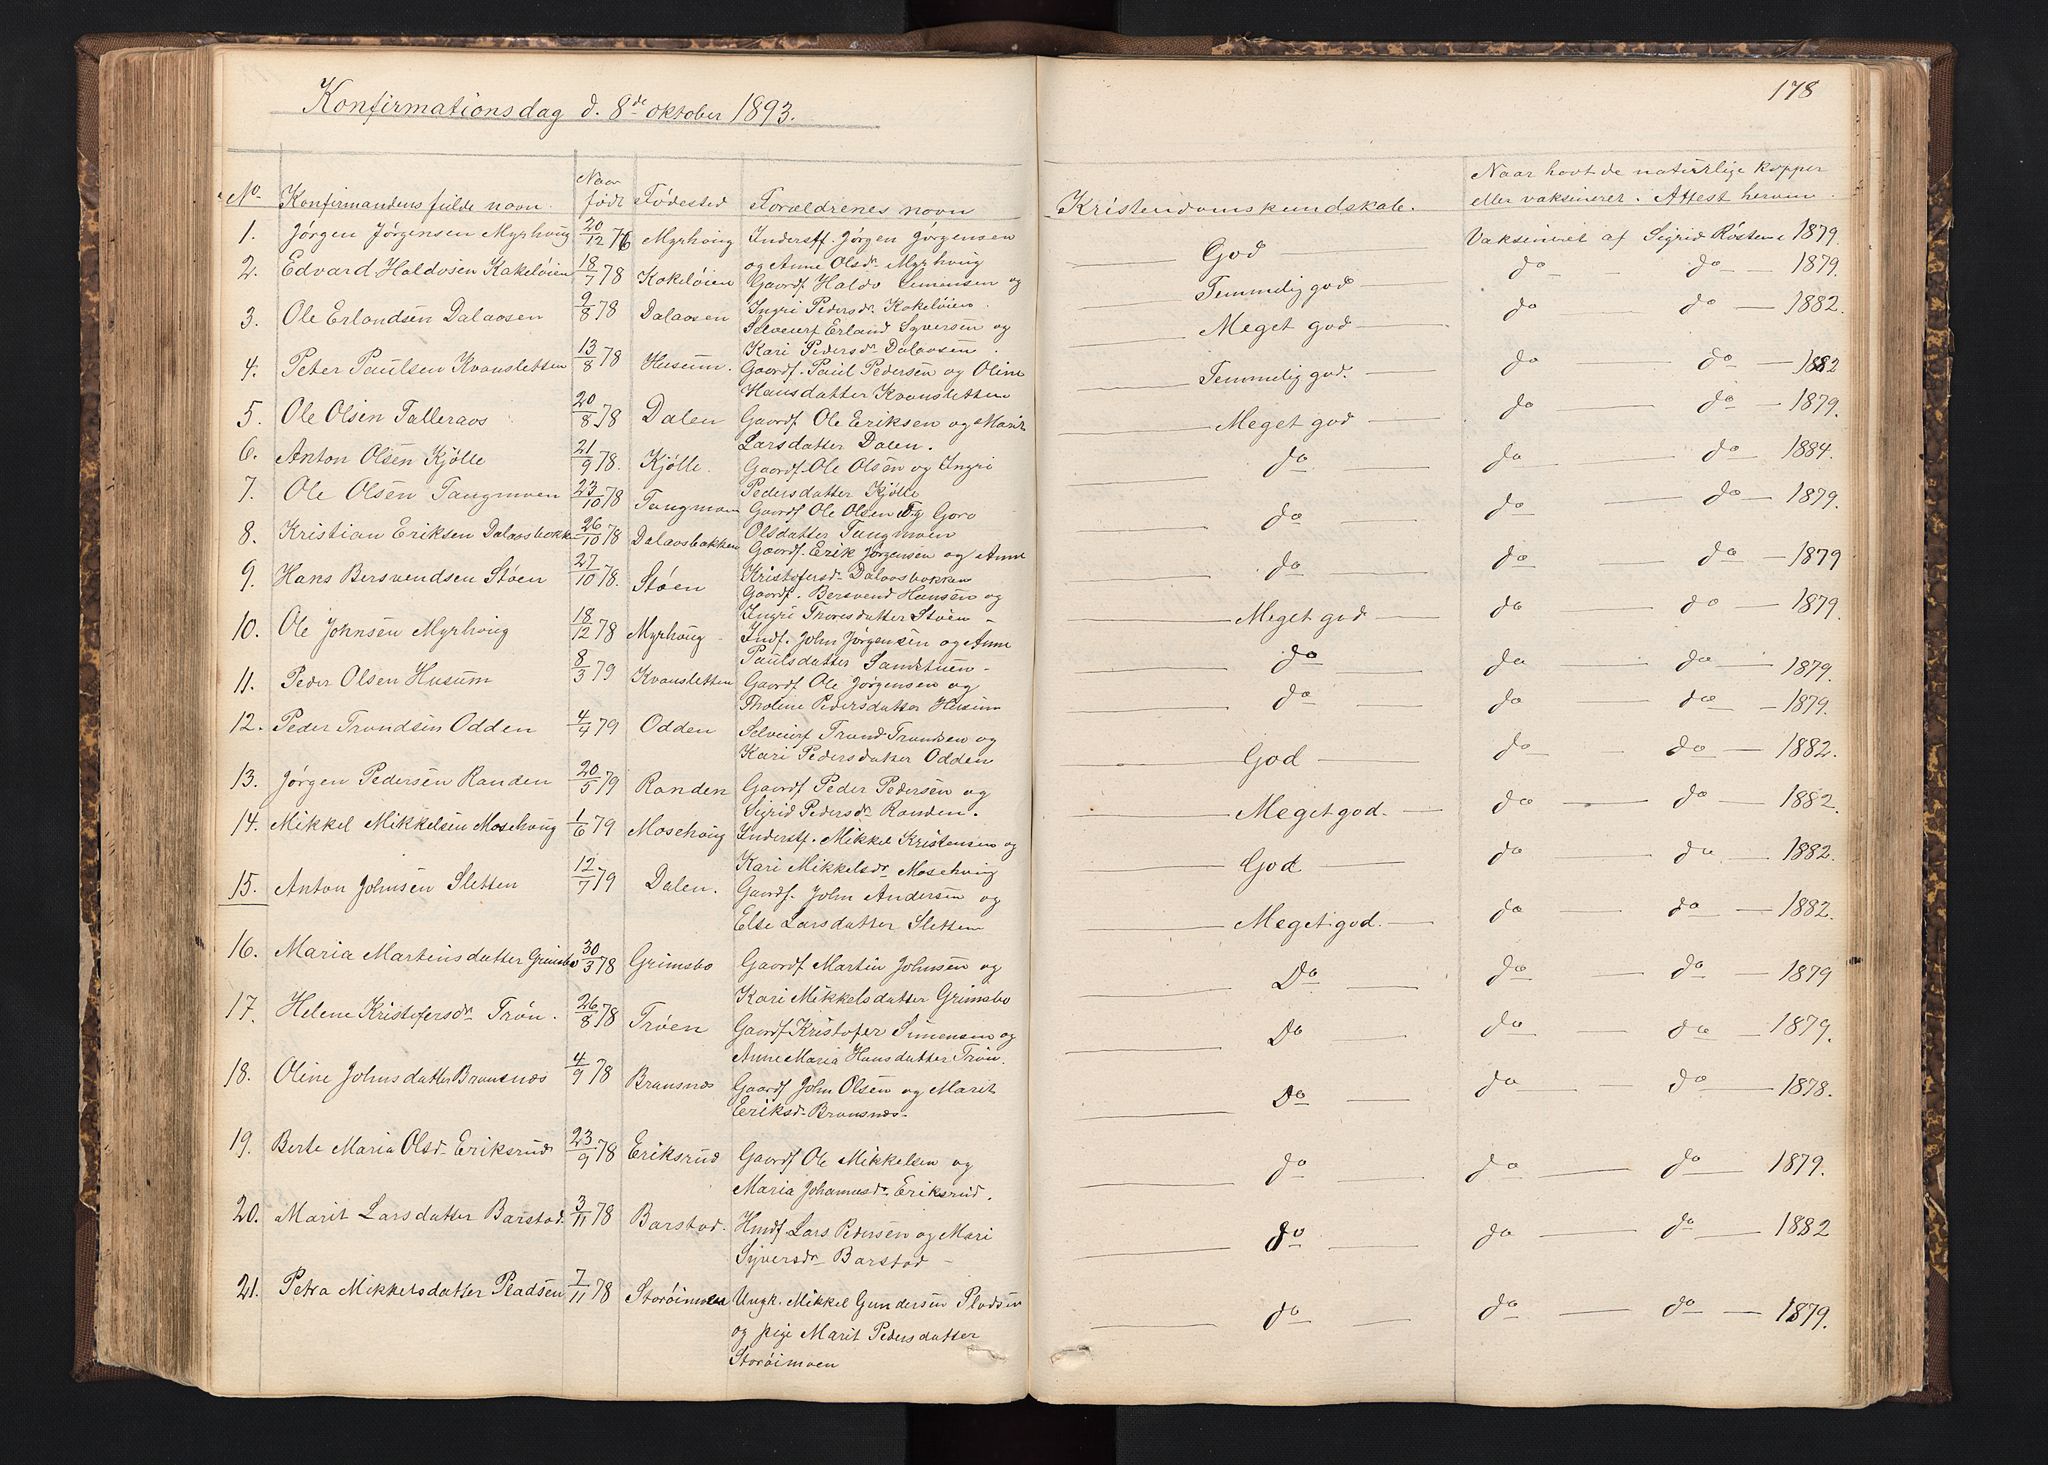 Konfirmationsdag d. 8de oktober 1893.
178
No. Konfirmandens fulde navn. Naar født Fødested Forældrenes navn Kristendomskundskab. Naar havt de naturlige kopper eller vaksineret. Attest herom
1. Jørgen Jørgensen Myrhoug 20/12 76 Myrhoug Inderstf. Jørgen Jørgensen God Vaksineret af Sigrid Røsten 1879.
og Anne Olsdr. Myrhoug
2. Edvard Haldosen Kakeløien 18/7 78 Kakeløien Gaardf. Haldo Simensen og Temmelig god do do 1879.
Ingri Pedersdr. Kakeløien.
3. Ole Erlandsen Dalaasen 9/8 78 Dalaasen Selveierf Erland Syversen og Meget god do do 1882.
Kari Pedersdr. Dalaasen.
4. Peter Paulsen Kvansletten 13/8 78 Husum. Gaardf. Paul Pedersen og Oline Temmelig god. do do 1882
Hansdatter Kvansletten
5. Ole Olsen Talleraas 20/8 78 Dalen Gaardf Ole Eriksen og Marit Meget god do do 1879.
Larsdatter Dalen.
6. Anton Olsen Kjølle 21/9 78. Kjølle. Gaardf. Ole Olsen og Ingri do do do 1884.
Pedersdatter Kjølle
7. Ole Olsen Tangmoen 23/10 78 Tangmoen Gaardf Ole Olsen og Goro do do do 1879.
Olsdatter Tangmoen
8. Kristian Eriksen Dalaasbakken 26/10 78 Dalaasbakken Gaardf. Erik Jørgensen og Anne do do do 1879
Kristofersdr. Dalaasbakken
9. Hans Bersvendsen Støen 27/10 78. Støen Gaardf. Bersvend Hansen og Meget god do do 1879.
Ingri Thoresdatter Støen
10. Ole Johnsen Myrhoug 18/12 78 Myrhoug Indf. John Jørgensen og Anne do do do 1879.
Paulsdatter Sandstuen
11. Peder Olsen Husum 8/3 79 Kvansletten Gaardf Ole Jørgensen og do do do 1879.
Tholine Pedersdatter Husum
12. Peder Trondsen Odden 4/4 79 Odden Selveierf Trond Trondsen og God do do 1882.
Kari Pedersdatter Odden
13. Jørgen Pedersen Randen 20/5 79 Randen Gaardf Peder Pedersen og Meget god. do do 1882.
Sigrid Pedersdr. Randen.
14. Mikkel Mikkelsen Mosehoug 1/6 79 Mosehoug Inderstf. Mikkel Kristensen og God do do 1882.
Kari Mikkelsdr. Mosehoug
15. Anton Johnsen Sletten 12/7 79 Dalen. Gaardf. John Andersen og Meget god. do do 1882.
Else Larsdatter Sletten
16. Maria Martinsdatter Grimsbo 30/3 78 Grimsbo Gaardf Martin Johnsen og Do do do 1879
Kari Mikkelsdatter Grimsbo
17. Helene Kristofersdr. Trøn. 26/8 78 Trøen Gaardf Kristofer Simensen og Do do do 1879.
Anne Maria Hansdatter Trøn.
18. Oline Johnsdatter Bransnæs 4/9 78 Bransnæs Gaardf John Olsen og Marit Do do do 1878.
Eriksdr. Bransnæs.
19. Berte Maria Olsdr. Eriksrud 23/9 78 Eriksrud Gaardf Ole Mikkelsen og do do do 1879.
Maria Johannesdr. Eriksrud.
20. Marit Larsdatter Barstad. 3/11 78 Barstad. Hmdf Lars Pedersen og Mari do do do 1882
Syversdr. Barstad
21. Petra Mikkelsdatter Pladsen 7/11 78 Storøimoen Ungk. Mikkel Gundersen Pladsen do do do 1879.
og pige Marit Pedersdatter
Storøimoen